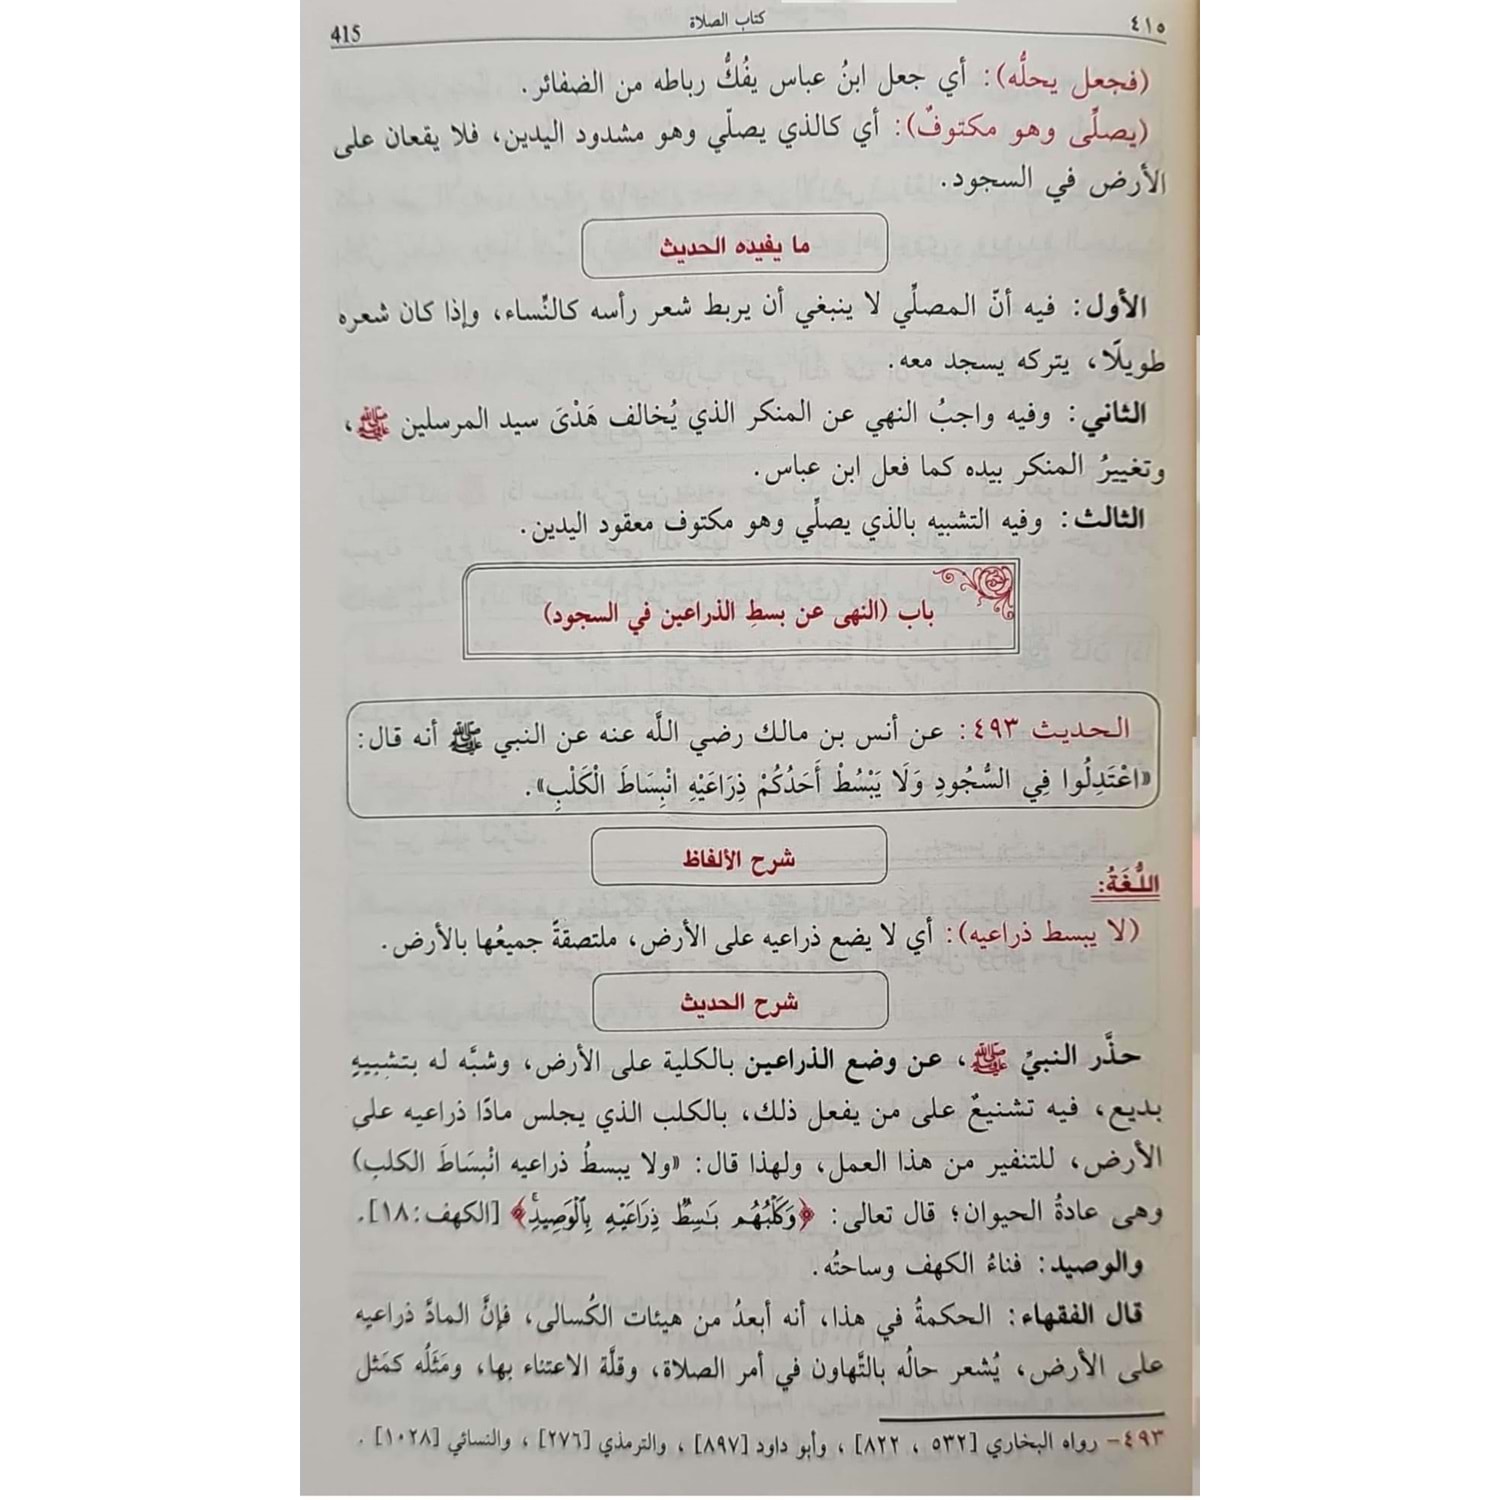 ٤١٥ كتاب الصلاة 415
(فجعل يحلُّه): أي جعل ابنُ عباس يفُكُّ رباطه من الضفائر.
(يصلِّى وهو مكتوفٌ): أي كالذي يصلّي وهو مشدود اليدين، فلا يقعان على
الأرض في السجود.
ما يفيده الحديث
الأول: فيه أنّ المصلِّي لا ينبغي أن يربط شعر رأسه كالنِّساء، وإذا كان شعره
طويلًا، يتركه يسجد معه.
الثاني: وفيه واجبُ النهي عن المنكر الذي يُخالف هَدْىَ سيد المرسلين ﷺ،
وتغييرُ المنكر بيده كما فعل ابن عباس.
الثالث: وفيه التشبيه بالذي يصلِّي وهو مكتوف معقود اليدين.
باب (النهى عن بسطِ الذراعين في السجود)
الحديث ٤٩٣: عن أنس بن مالك رضي اللَّه عنه عن النبي ﷺ أنه قال:
«اعْتَدِلُوا فِي السُّجُودِ وَلَا يَبْسُطْ أَحَدُكُمْ ذِرَاعَيْهِ انْبِسَاطَ الْكَلْبِ».
شرح الألفاظ
اللُّغَةُ:
(لا يبسط ذراعيه): أي لا يضع ذراعيه على الأرض، ملتصقةً جميعُها بالأرض.
شرح الحديث
حذَّر النبيِّ ﷺ، عن وضع الذراعين بالكلية على الأرض، وشبَّه له بتشبيهٍ
بديع، فيه تشنيعٌ على من يفعل ذلك، بالكلب الذي يجلس مادّا ذراعيه على
الأرض، للتنفير من هذا العمل، ولهذا قال: «ولا يبسطُ ذراعيه انْبسَاطَ الكلب)
وهى عادةُ الحيوان؛ قال تعالى: ﴿وَكَلْبُهُم بَٰسِطٌ ذِرَاعَيْهِ بِالْوَصِيدِ﴾ [الكهف: ١٨].
والوصيد: فناءُ الكهف وساحتُه.
قال الفقهاء: الحكمةُ في هذا، أنه أبعدُ من هيئات الكُسالى، فإنَّ المادَّ ذراعيه
على الأرض، يُشعر حالُه بالتَّهاون في أمر الصلاة، وقلَّة الاعتناء بها، ومَثَلُه كمَثل
٤٩٣- رواه البخاري [٥٣٢ ، ٨٢٢] ، وأبو داود [٨٩٧] ، والترمذي [٢٧٦] ، والنسائي [١٠٢٨] .